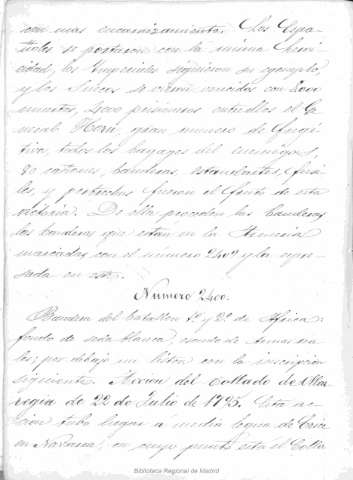 con mas encarnizamiento. Los Espa-
ñoles se portaron con la misma
los Imperiales siguieron su ejemplo,
y los Suecos se vieron vencidos con
muertos, 4,000 prisioneros entre ellos el Ge-
neral Horn, gran numero de fugi-
tivos, todos los bagages del enemigo,
80 cañones, banderas, estandartes,
y pertrechos fueron el fruto de esta
victoria. De ella proceden las banderas
las banderas que están en la Armeria
marcadas con el numero y la
sada en
Numero 2400.
Bandera del Batallon 1º y 2º de Africa:
fondo de seda blanca,
por debajo un liston con la inscripcion
siguiente. Accion del Collado de
de 22 de Julio de 1795. Esta ac-
cion tubo lugar a media legua de
en Navarra, en cuyo punto está el Colla
Biblioteca Regional de Madrid